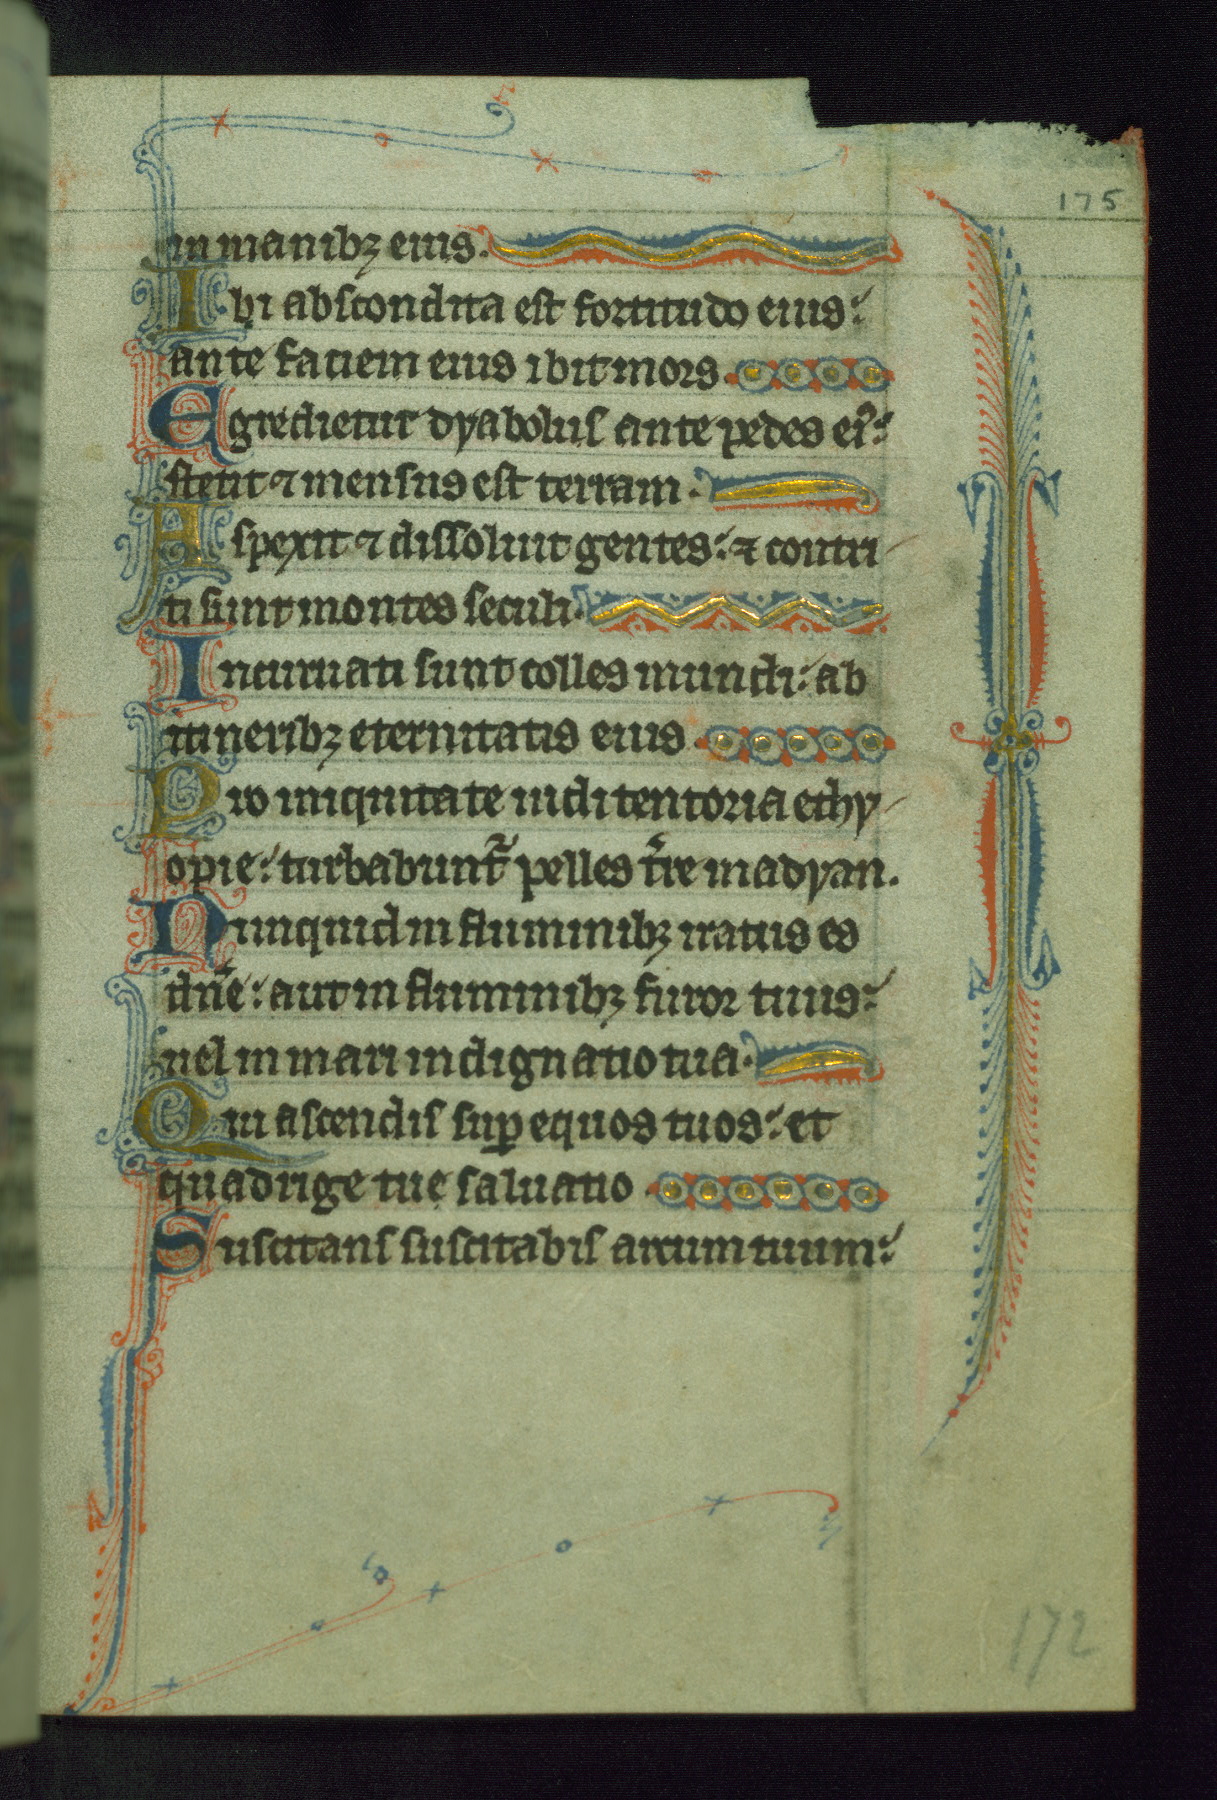 175
in manibꝫ eius.
Ibi abscondita est fortitudo eius:
ante faciem eius ibit mors.
Egredietur dyabolus ante pedes eiꝰ:
stetit ⁊ mensus est terram.
Aspexit ⁊ dissoluit gentes: ⁊ contri
ti sunt montes seculi.
Incuruati sunt colles mundi: ab
itineribꝫ eternitatis eius.
Pro iniquitate uidi tentoria ethy
opie: turbabunt᷑ pelles t̾re madyan.
Nunquid in fluminibꝫ iratus es
dn̄e: aut in fluminibꝫ furor tuus:
uel in mari indignatio tua.
Qui ascendis suꝑ equos tuos: et
quadrige tue saluatio.
Suscitans suscitabis arcum tuum:
172